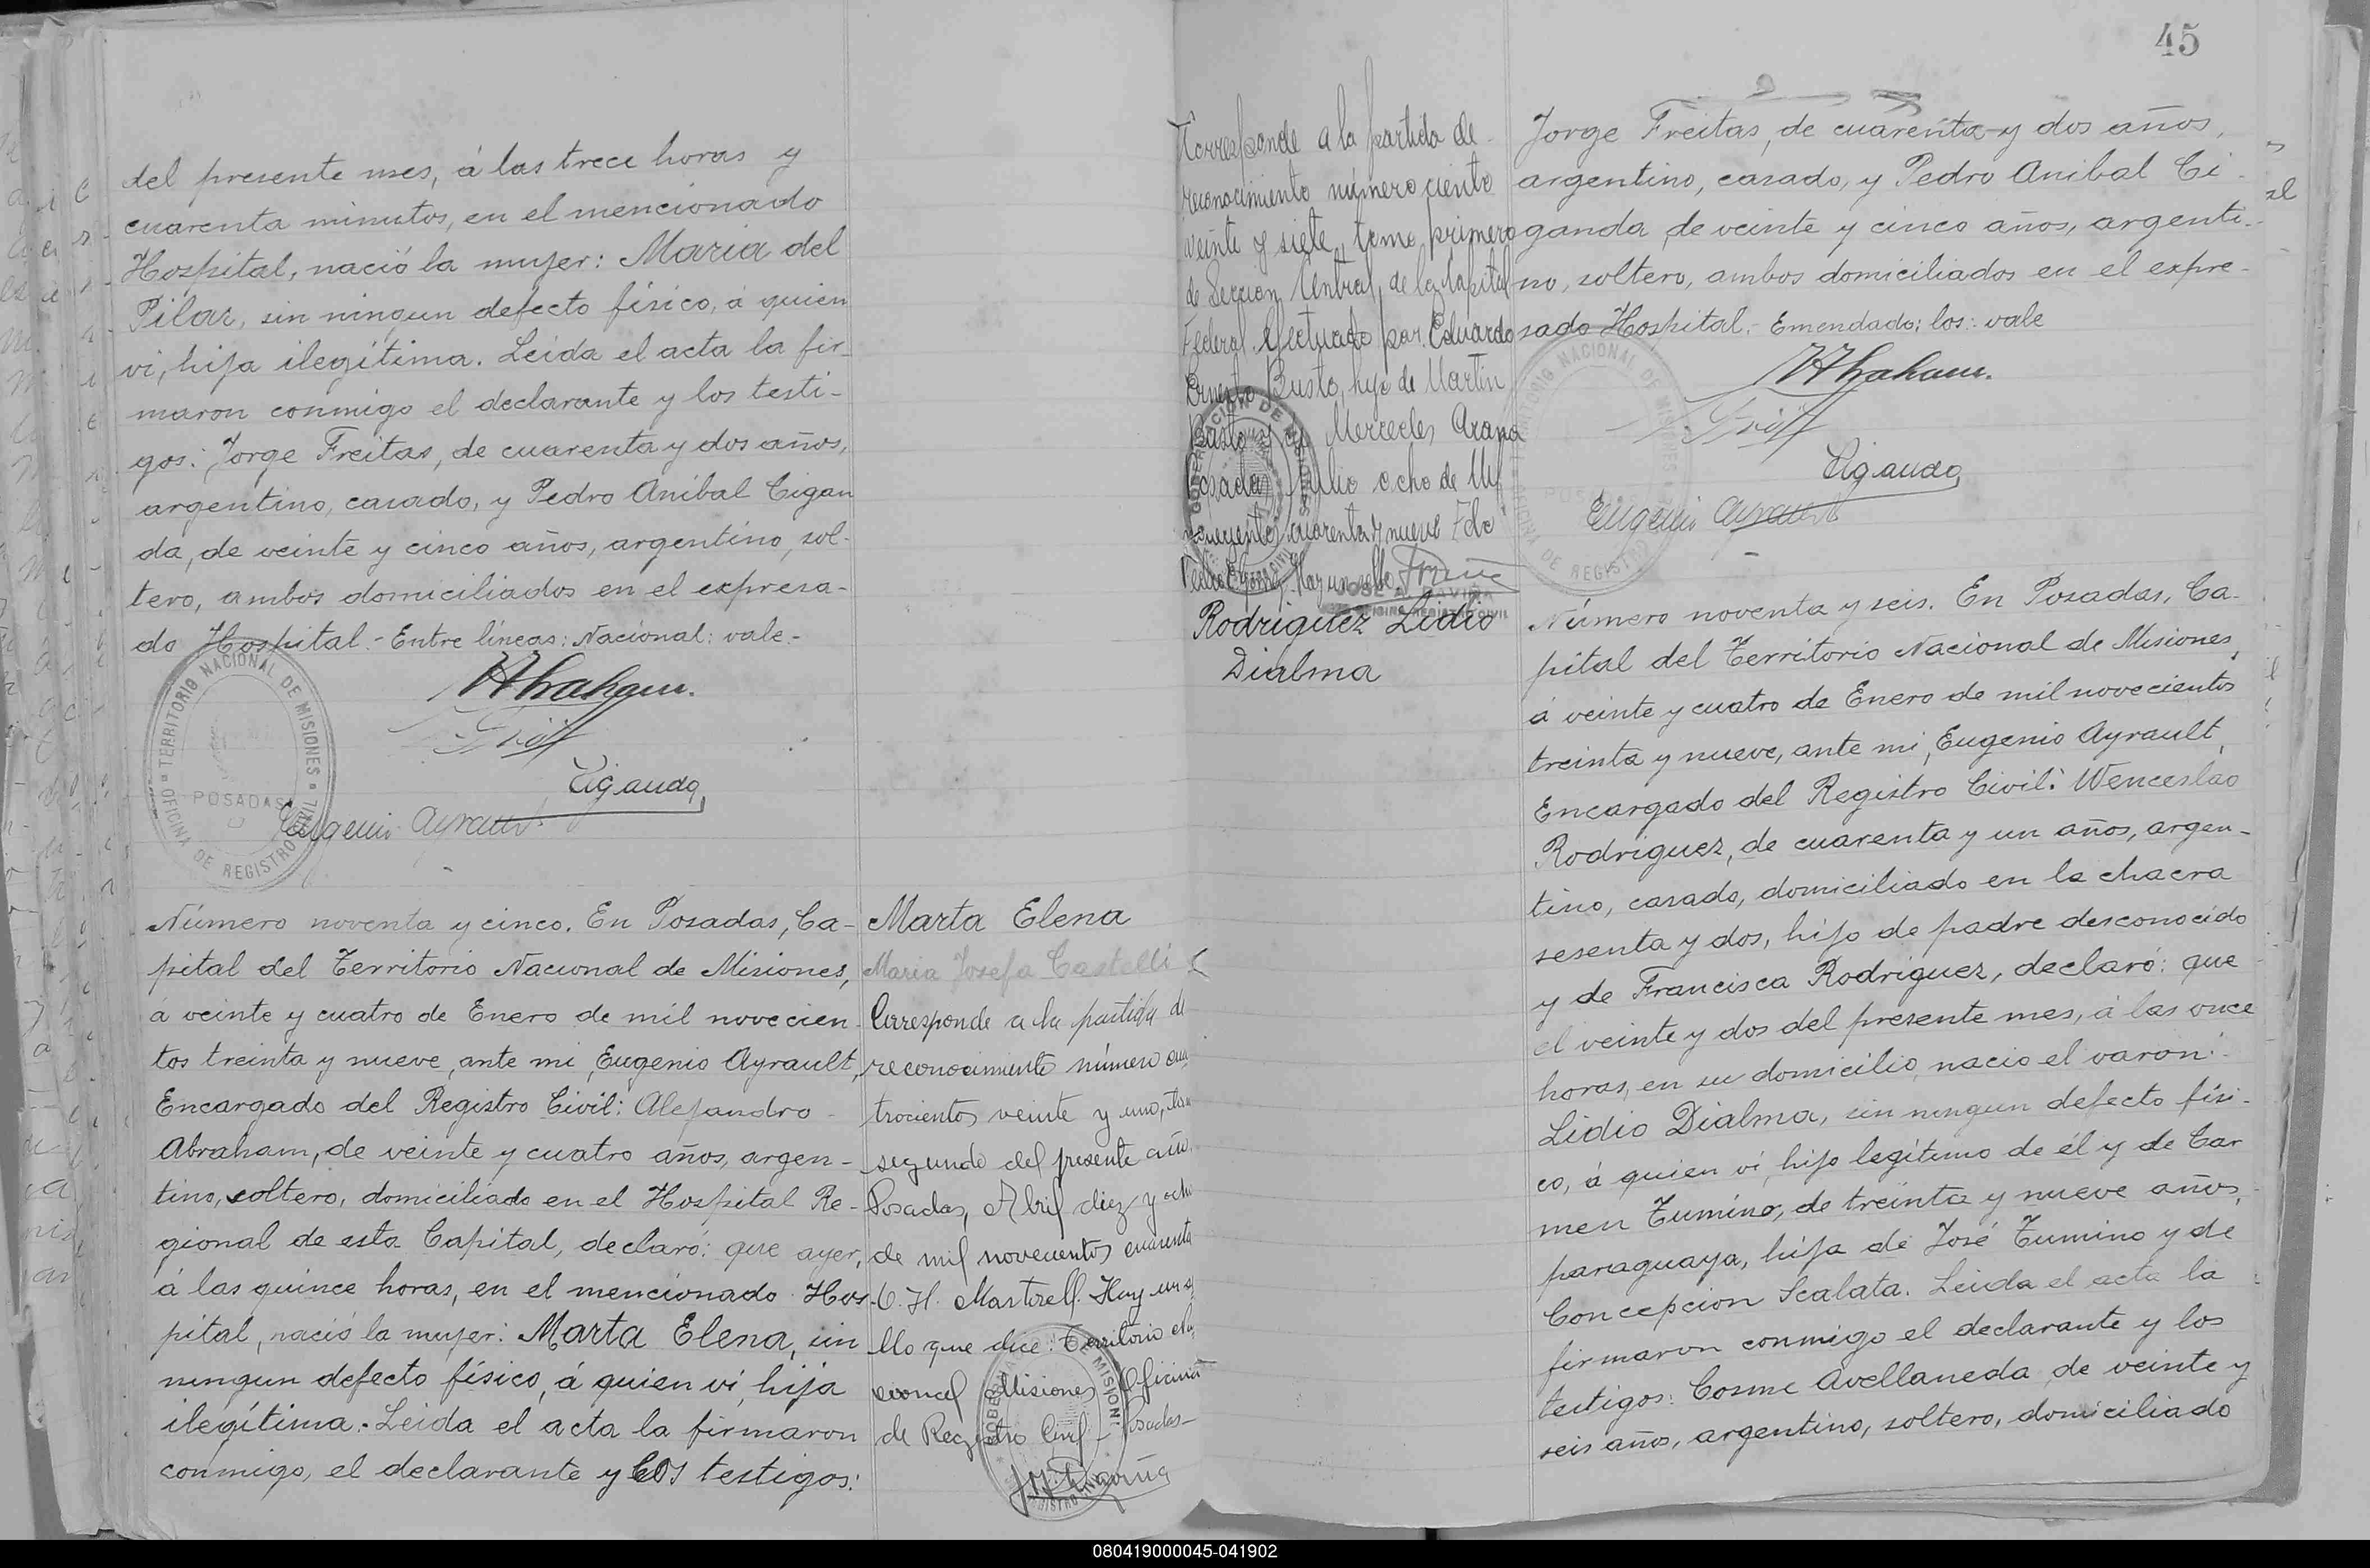 del presente mes, á las trece horas y
cuarenta minutos, en el mencionado
Hospital, nació la mujer: Maria del
Pilar, sin ningun defecto físico, á quien
ví, hija ilegítima. Leida el acta la fir-
maron conmigo el declarante y los testi-
gos: Jorge Freitas, de cuarenta y dos años,
argentino, casado, y Pedro Anibal Cigan
da, de veinte y cinco años, argentino, sol-
tero, ambos domiciliados en el expresa-
do Hospital.- Entre líneas: Nacional: vale.-
TERRITORIO NACIONAL DE MISIONES
OFICINA DE REGISTRO CIVIL
POSADAS
AAbraham.
Ciganda
Eugenio Ayrault
Número noventa y cinco. En Posadas, Ca-
pital del Territorio Nacional de Misiones,
á veinte y cuatro de Enero de mil novecien-
tos treinta y nueve, ante mi, Eugenio Ayrault,
Encargado del Registro Civil: Alejandro
Abraham, de veinte y cuatro años, argen-
tino, soltero, domiciliado en el Hospital Re-
gional de esta Capital, declaró: que ayer,
á las quince horas, en el mencionado Hos-
pital, nació la mujer: Marta Elena, sin
ningun defecto físico, á quien ví, hija
ilegítima. Leida el acta la firmaron
conmigo, el declarante y los testigos:
Marta Elena
Maria Josefa Castelli
Corresponde a la partida de
reconocimiento número cua
trocientos veinte y uno, tomo
segundo del presente año.
Posadas, Abril diez y ocho
de mil novecientos cuarenta
C. H. Martorell. Hay un se
llo que dice: Territorio Na
cional Misiones Oficina
de Registro Civil - Posadas-
45
Corresponde a la partida de
reconocimiento número ciento
veinte y siete, tomo primero
de Sección Central de la Capital
Federal efectuado por Eduardo
Ernesto Busto, hijo de Martin
Busto y de Mercedes Arana
Posadas, Julio ocho de Mil
novecientos cuarenta y nueve Fdo
Hay un sello
Rodriguez Lidio
Dialma
Jorge Freitas, de cuarenta y dos años,
argentino, casado, y Pedro Anibal Ci-
ganda, de veinte y cinco años, argenti-
no, soltero, ambos domiciliados en el expre-
sado Hospital.- Emendado: los: vale
AAbraham.
Ciganda
Eugenio Ayrault
Número noventa y seis. En Posadas, Ca-
pital del Territorio Nacional de Misiones,
á veinte y cuatro de Enero de mil novecientos
treinta y nueve, ante mi, Eugenio Ayrault,
Encargado del Registro Civil: Wenceslao
Rodriguez, de cuarenta y un años, argen-
tino, casado, domiciliado en la chacra
sesenta y dos, hijo de padre desconocido
y de Francisca Rodriguez, declaró: que
el veinte y dos del presente mes, á las once
horas, en su domicilio, nacio el varon:-
Lidio Dialma, sin ningun defecto físi-
co, á quien ví, hijo legítimo de él y de Car
men Tumino, de treinta y nueve años,
paraguaya, hija de José Tumino y de
Concepcion Scalata. Leida el acta la
firmaron conmigo el declarante y los
testigos: Cosme Avellaneda, de veinte y
seis años, argentino, soltero, domiciliado
080419000045-041902